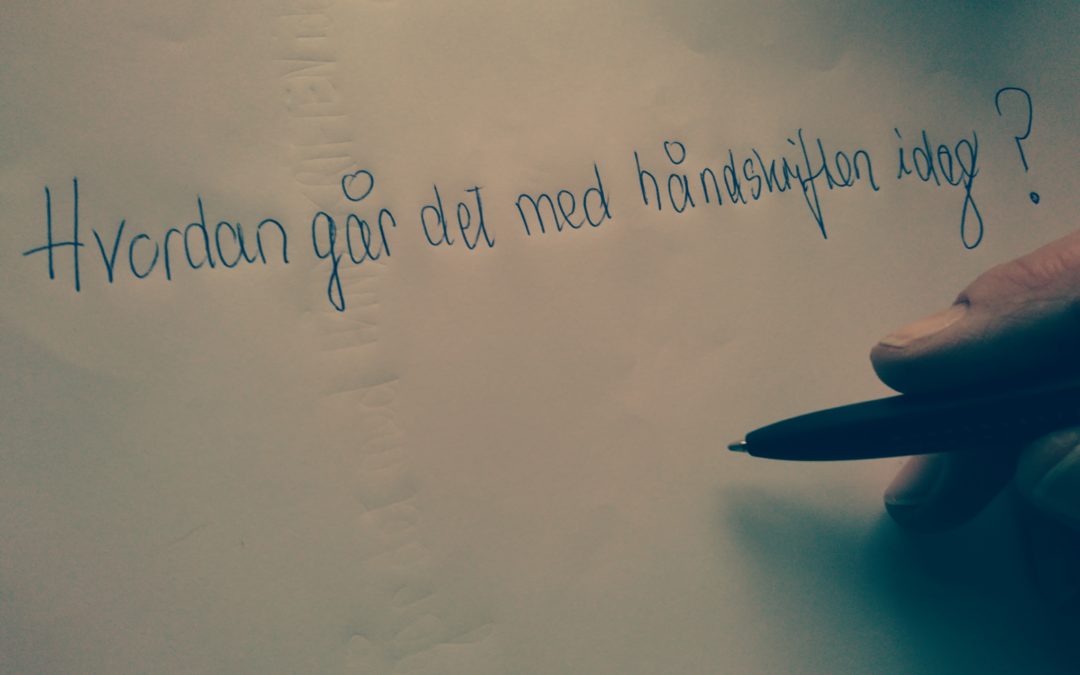 Hvordan går det med håndskriften idag?